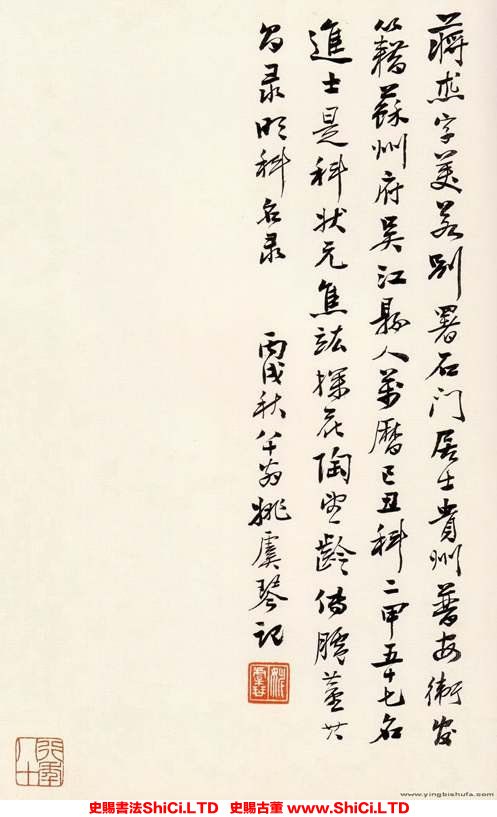 蔣杰字美若別署石门居士貴州普安衛官
籍蘇州府吳江縣人萬曆己丑科二甲五十七名
進士是科狀元焦竑探花陶望齡傳臚董其
昌录明科名录
丙戌秋八十翁姚虞琴記
姚虞琴
行年八十
www.yingbishufa.com
史賜書法ShiCi.LTD 史賜古董 www.ShiCi.LTD